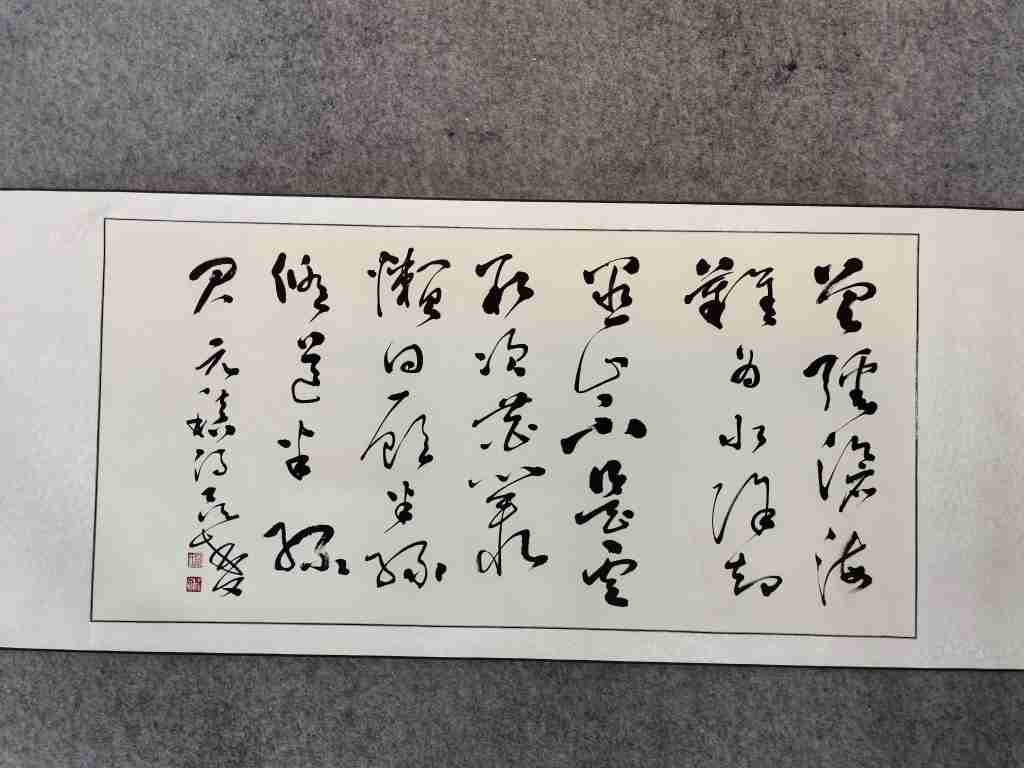 曾經滄海
難為水除却
巫山不是雲
取次花叢
懶回顧半緣
修道半緣
君 元稹詩